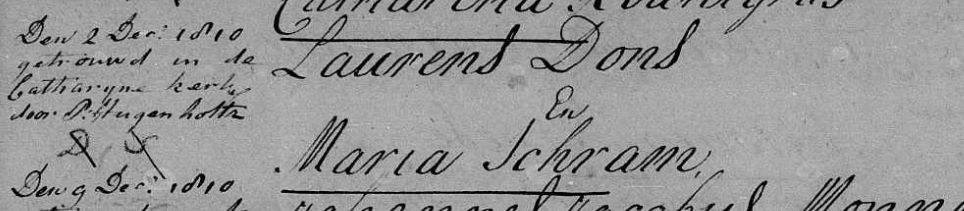 Catharina
Den 2 Dec: 1810
getrouwd in de
Catharyne kerk
door P: Hugenholtz
Laurens Dons
En
Maria Schram,
Den 9 Dec: 1810
Johannes Jacobus